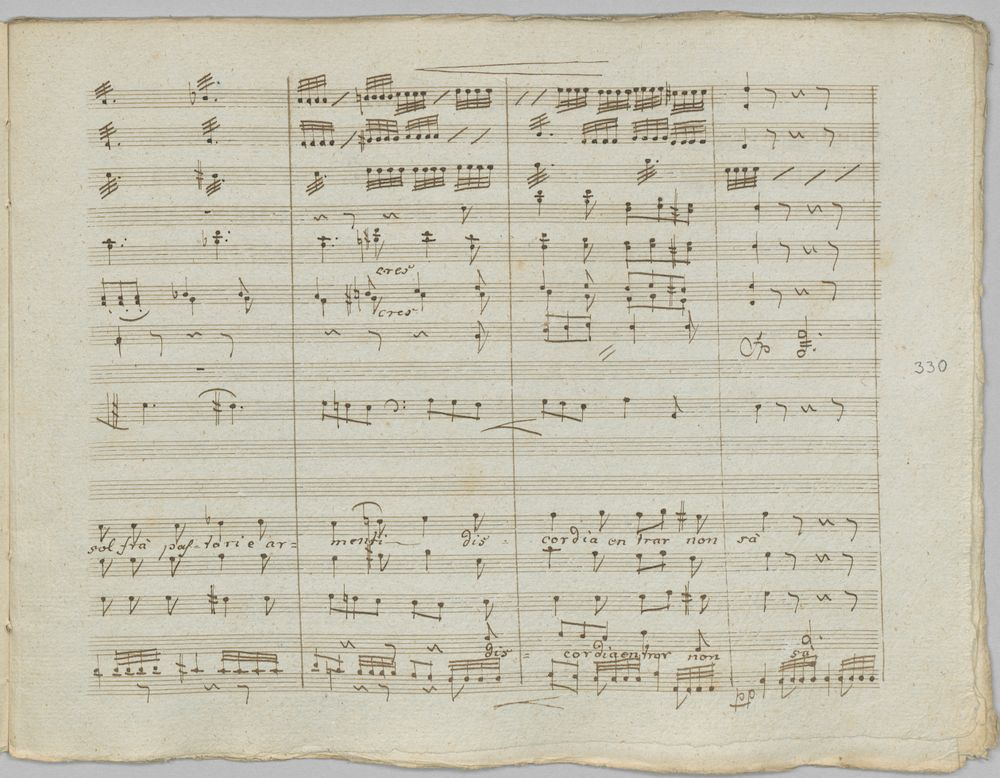 cres
cres
330
sol frà pas-tori e ar=
menti dis-
cordia en trar non sà
dis= cordia en trar non sà
pp